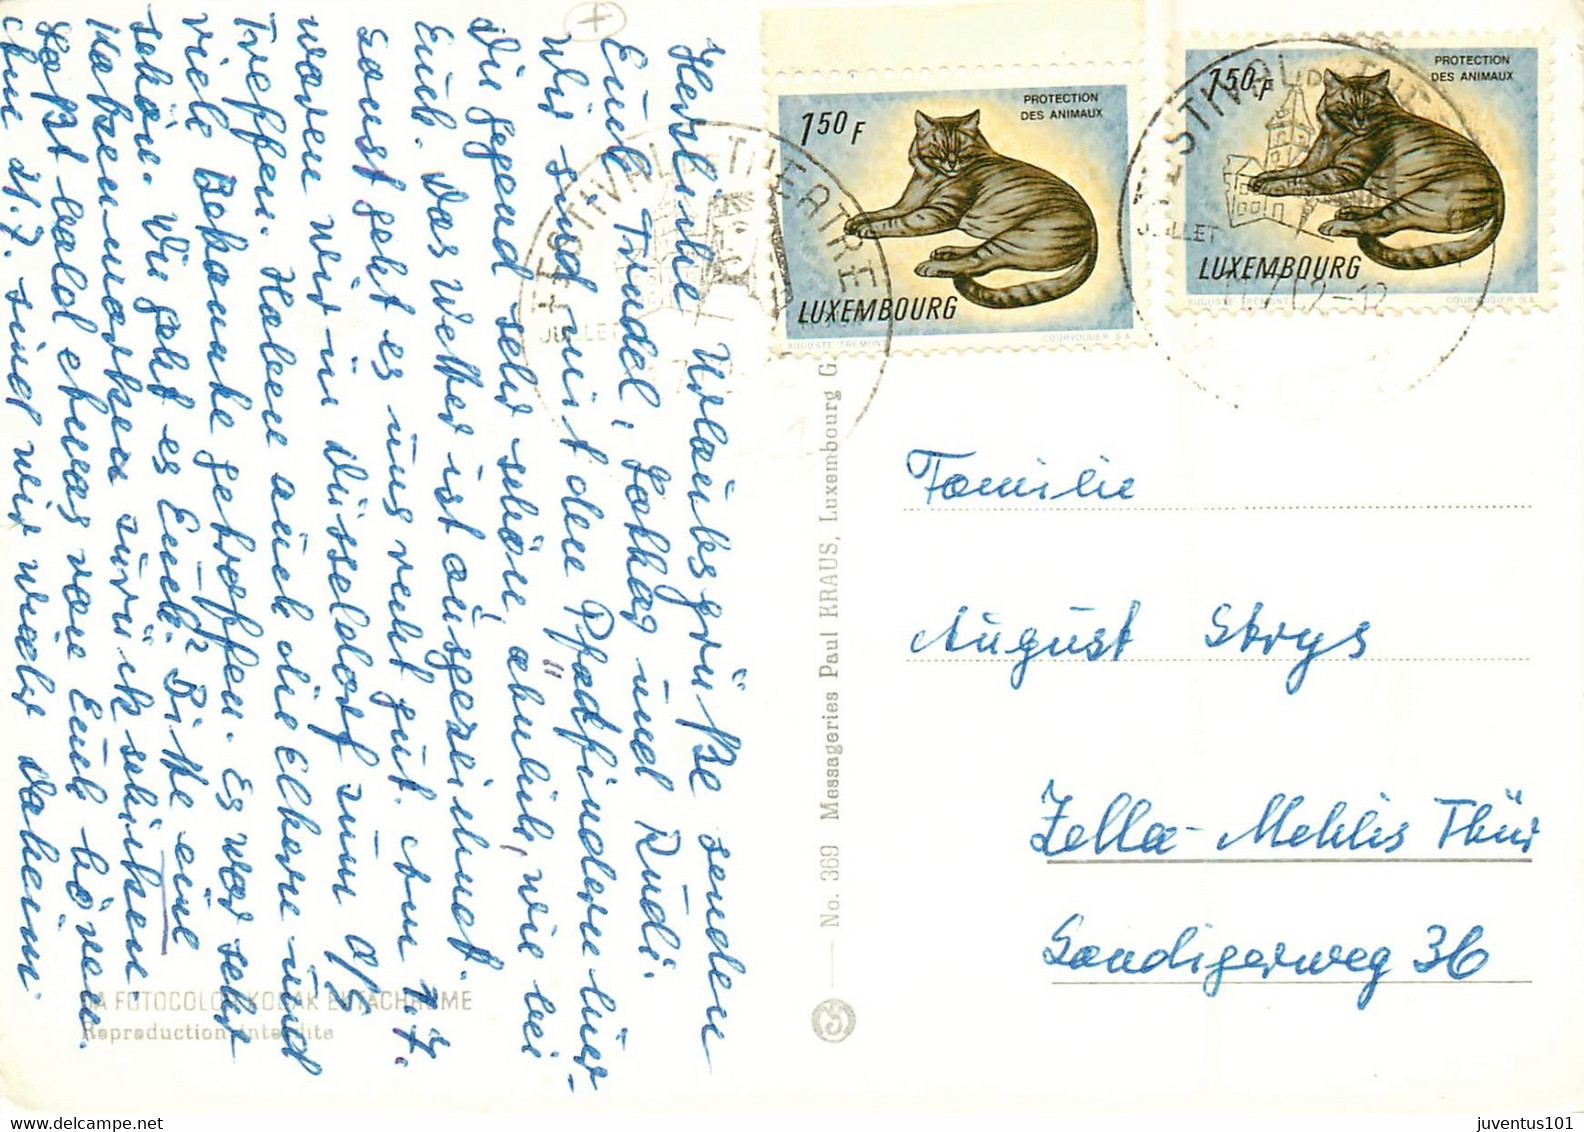 Herzliche Urlaubsgrüße senden
Euch Trudel, Lothar und Rudi.
Wir sind mit den Pfadfindern hier.
Die Gegend sehr schön, ähnlich, wie bei
Euch. Das Wetter ist ausgezeichnet.
Sonst geht es uns recht gut. Am 1.7.
waren wir in Düsseldorf zum
Treffen. Haben auch die Elbern und
viele Bekannte getroffen. Es war sehr
schön. Wie geht es Euch? Bitte eine
zurück schicken,
Laßt bald etwas von Euch hören.
Am 21.7. sind wir wieder daheim
SA FOTOCOLOR KODAK EKTACHROME
Reproduction interdite
No. 369 Messageries Paul KRAUS, Luxembourg G
FESTIVAL THEATRE
JUILLET
1 50 F
PROTECTION
DES ANIMAUX
LUXEMBOURG
AUGUSTE TREMONT
COURVOISIER S.A.
FESTIVAL
JUILLET
1 50 F
PROTECTION
DES ANIMAUX
LUXEMBOURG
AUGUSTE TREMONT
COURVOISIER S.A.
Familie
August Strys
Zella-Mehlis Thür
Sandigerweg 36
juventus101